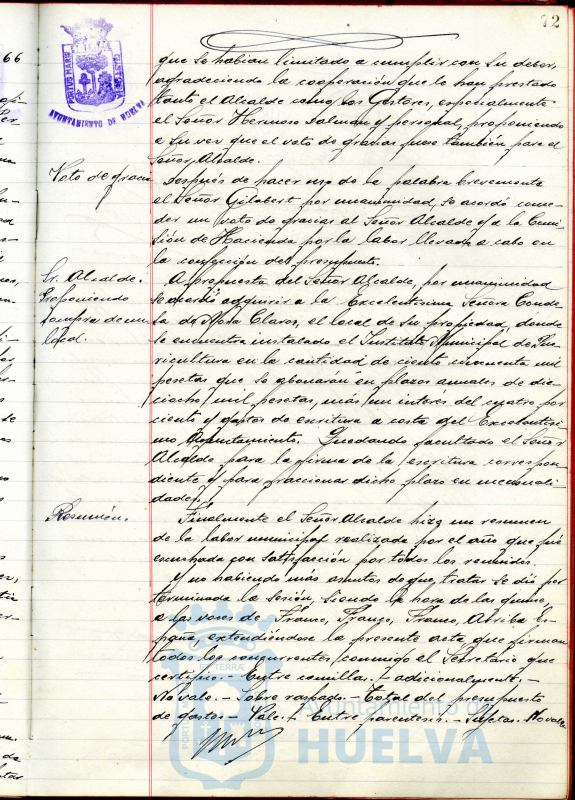 72
66
PORTUS MARIS
AYUNTAMIENTO DE HUELVA
que se habian limitado a cumplir con su deber,
agradeciendo la cooperación que le han prestado
tanto el Alcalde como los Gestores, especialmente
el Señor Hermoso Salman y personal, proponiendo
a su vez que el voto de gracias fuese también para el
Señor Alcalde.
Voto de gracia
Después de hacer uso de la palabra brevemente
el Señor Gilabert por unanimidad, se acordó conce-
der un voto de gracias al Señor Alcalde y a la Comi-
sión de Hacienda por la labor llevada a cabo en
la confección del presupuesto.
Sr. Alcalde.
Proponiendo
compra de un
local.
A propuesta del Señor Alcalde, por unanimidad
se acordó adquirir a la Excelentísima Señora Conde-
sa de Mora Claros, el local de su propiedad, donde
se encuentra instalado el Instituto Municipal de Pue-
ricultura en la cantidad de ciento cincuenta mil
pesetas que se abonarán en plazos anuales de die-
ciocho mil pesetas, más un interés del cuatro por
ciento y gastos de escritura a costa del Excelentísi-
mo Ayuntamiento. Quedando facultado el Señor
Alcalde para la firma de la escritura correspon-
diente y para fraccionar dicho plazo en mensuali-
dades.
Resumen.
Finalmente el Señor Alcalde hizo un resumen
de la labor municipal realizada por el año que fué
escuchada con satisfacción por todos los reunidos.
Y no habiendo más asuntos de que tratar se dió por
terminada la sesión, siendo la hora de las quince,
a las voces de Franco, Franco, Franco, Arriba Es-
paña, extendiéndose la presente acta que firman
todos los concurrentes, conmigo el Secretario que
certifico.- Entre comillas.- adicionalmente.-
No vale.- Sobre raspado.- Total del presupuesto
de gastos.- Vale.- Entre parentesis.- Sujetas.- No vale.
Ayuntamiento de
HUELVA